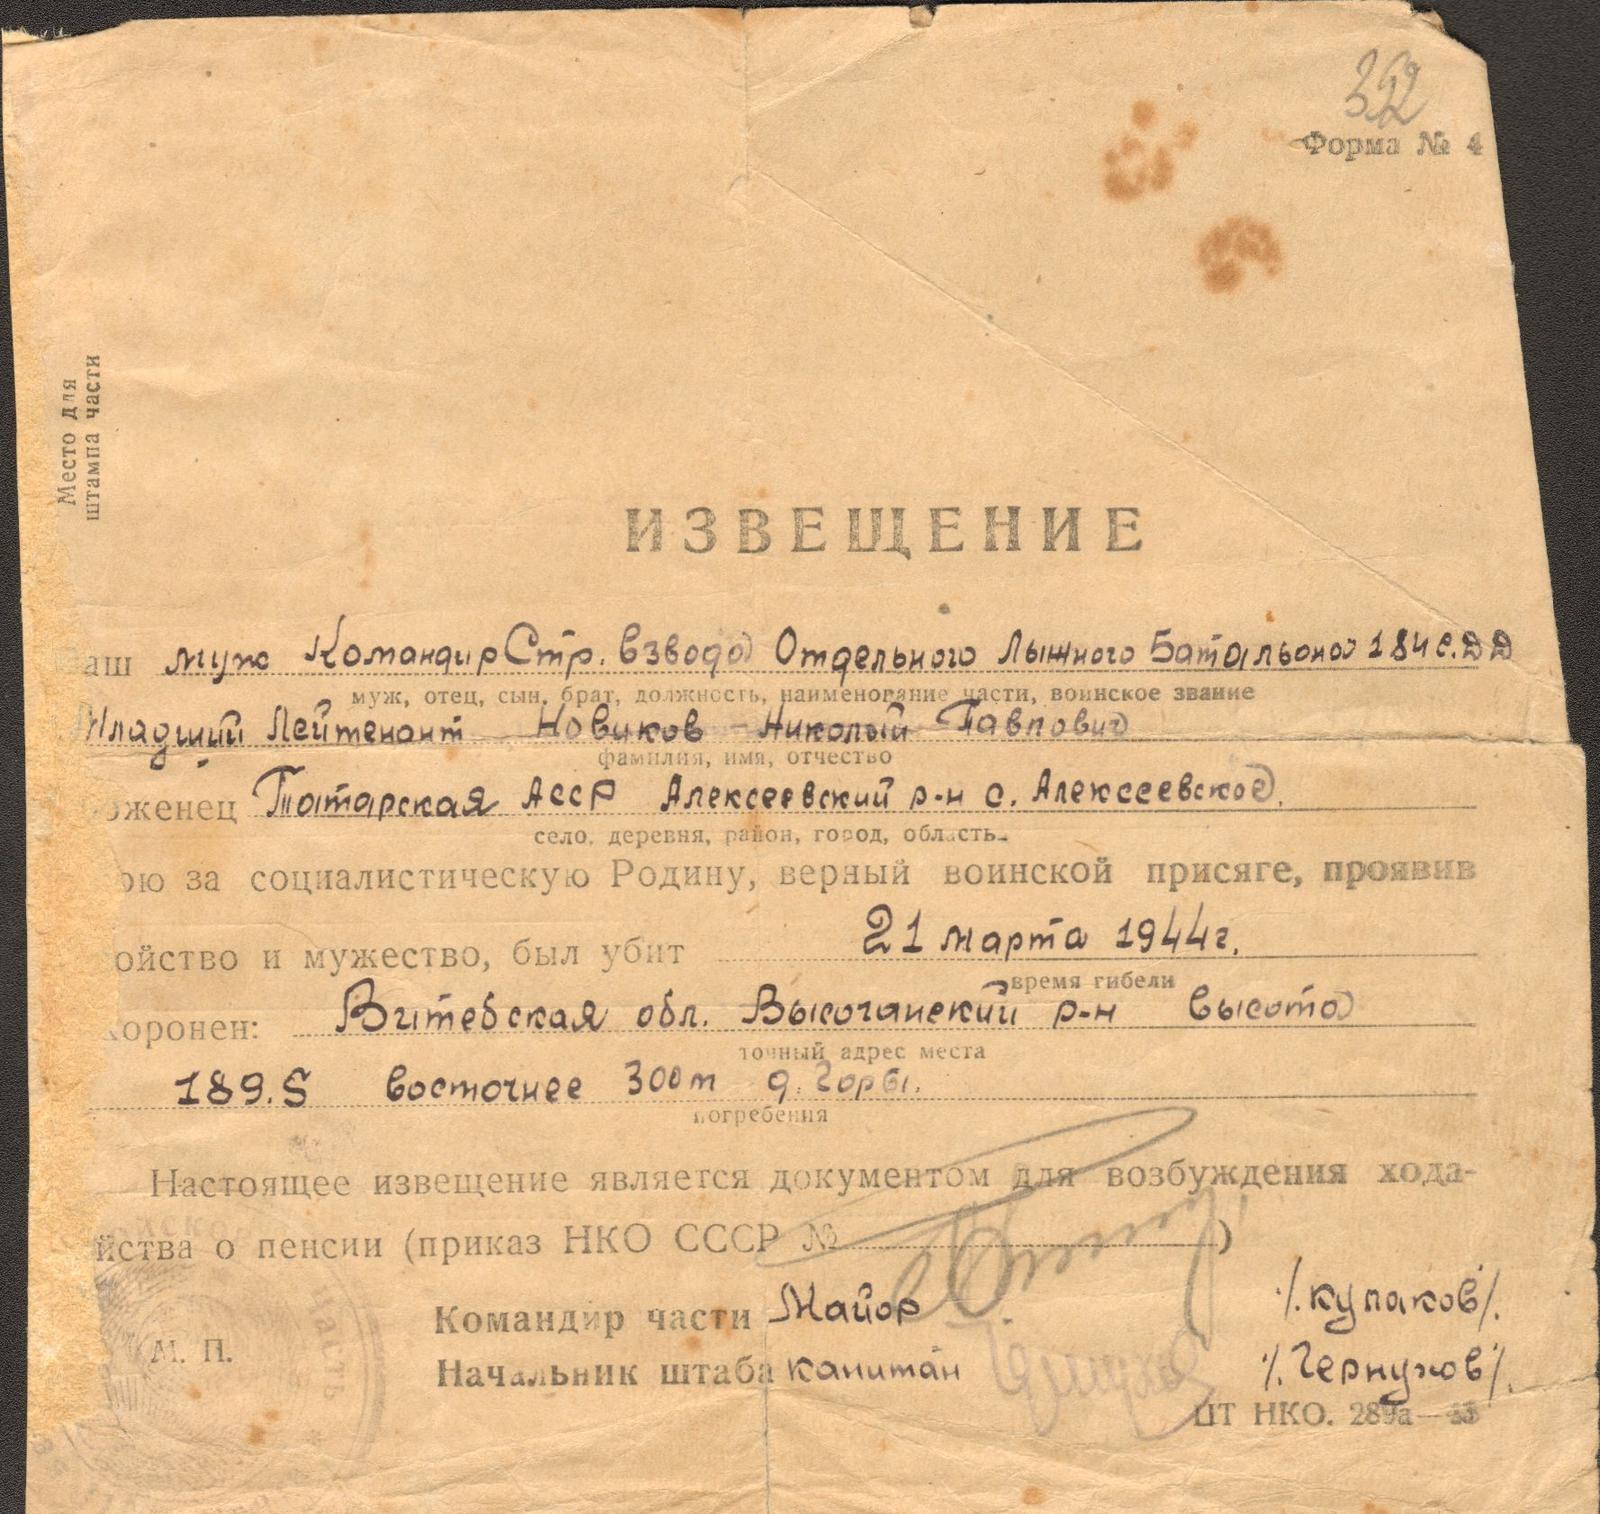 352
Форма № 4
Место для
штампа части
ИЗВЕЩЕНИЕ
аш муж Командир Стр. взвода Отдельного Лыжного Батальона 184 с.д
муж, отец, сын, брат, должность, наименование части, воинское звание
Младший Лейтенант Новиков Николай Павлович
фамилия, имя, отчество
оженец Татарская АССР Алексеевский р-н с. Алексеевское.
село, деревня, район, город, область
ою за социалистическую Родину, верный воинской присяге, проявив
ойство и мужество, был убит 21 марта 1944г.
время гибели
хоронен: Витебская обл. Высочанский р-н высота
точный адрес места
189.5 восточнее 300м д. Горбы.
погребения
Настоящее извещение является документом для возбуждения хода-
йства о пенсии (приказ НКО СССР № )
Командир части Майор /.Кулаков/.
М. П.
Начальник штаба капитан /.Чернухов/.
ЦТ НКО. 289а
часть